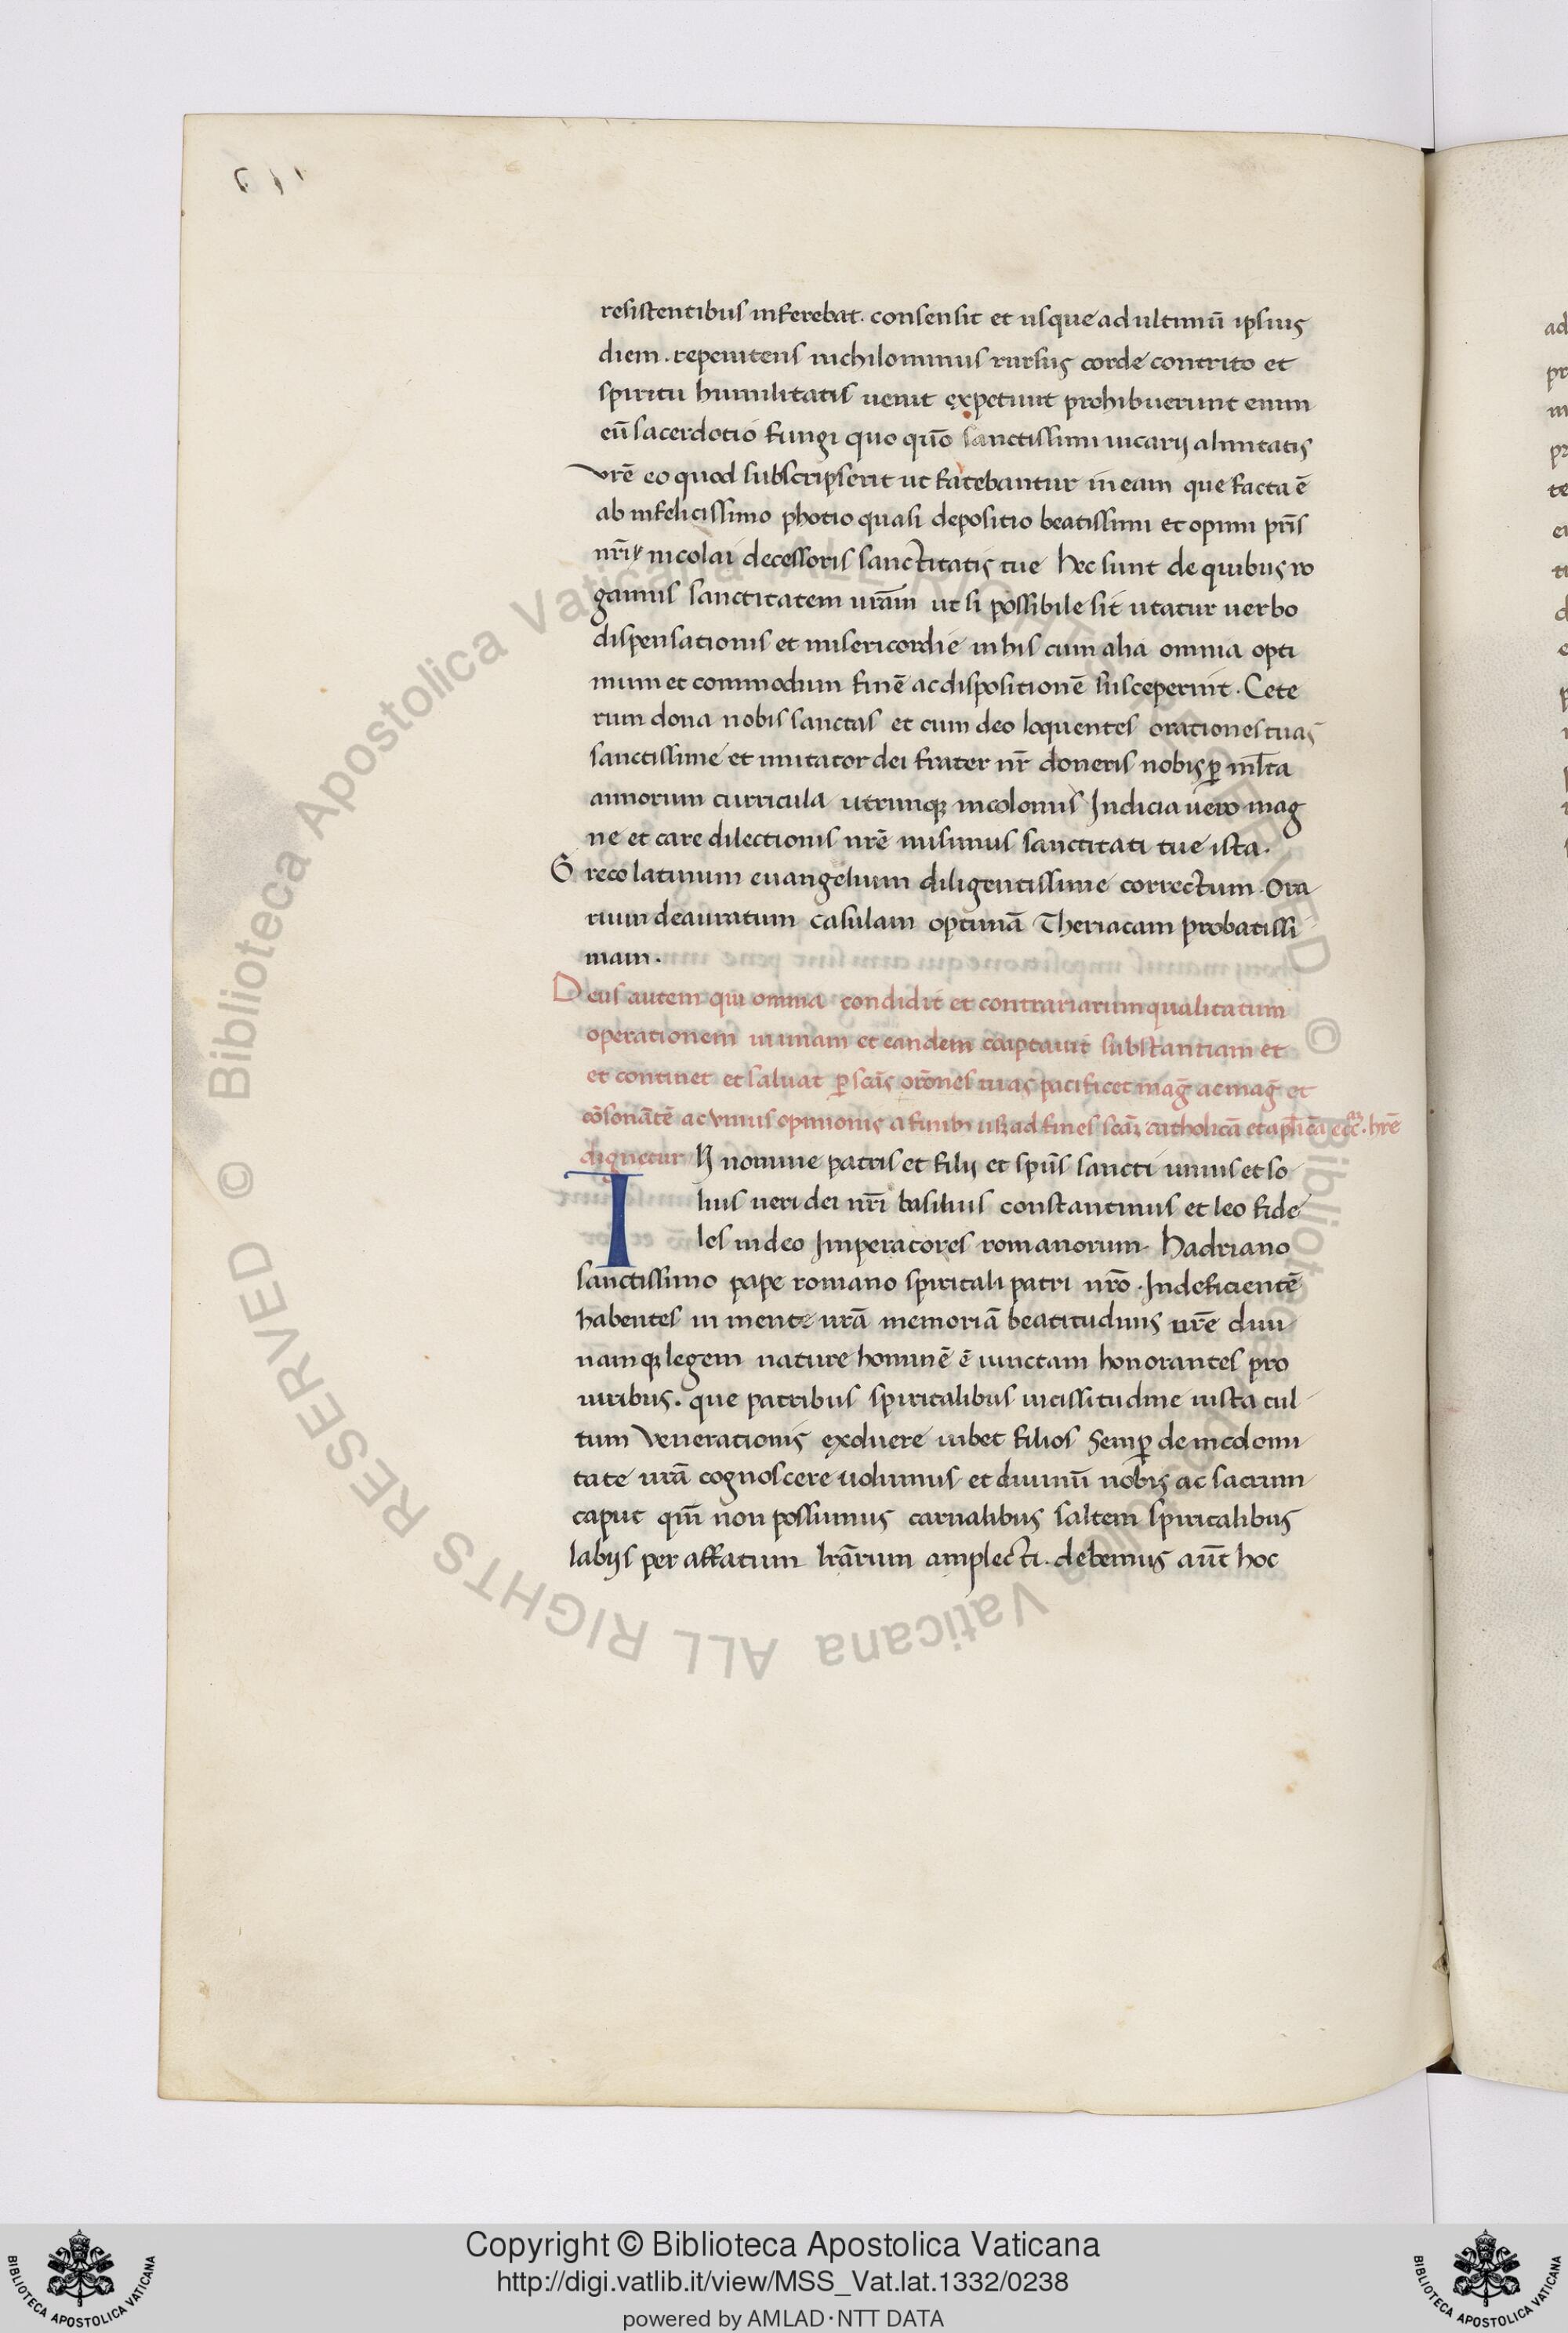 resistentibus inferebat. consensit et usque ad ultimū ipsius
diem. repenitens nichilominus rursus corde contrito et
spiritu humilitatis uenit expetiuit prohibuerunt enim
eū sacerdotio fungi quo quō sanctissimi uicarij almitatis
vrē eo quod subscripserit ut fatebantur in eam que facta ē
ab infelicissimo photio quasi depositio beatissimi et opimi pr̄is
nr̄i nicolai decessoris sanctitatis tue hec sunt de quibus ro
gamus sanctitatem urām ut si possibile sit utatur uerbo
dispensationis et misericordie in his cum alia omnia opti
mum et commodum finē ac dispositionē susceperint. Cete
rum dona nobis sanctas et cum deo loquentes orationes tuas
sanctissime et imitator dei frater nr̄ doneris nobis ꝑ ml̄ta
annorum curricula utrunqꝫ incolomis Indicia uero mag
ne et care dilectionis nrē misimus sanctitati tue ista.
Greco latinum euangelium diligentissime correctum. Ora
rium deauratum casulam optimā Theriacam probatissi
mam.
Deus autem qui omnia condidit et contrariarum qualitatum
operationem in unam et eandem coaptauit substantiam et
et continet et saluat ꝑ scās orōnes tuas pacificet maḡ ac maḡ et
cōsonātē ac vnius opinionis a finibꝫ usqꝫ ad fines scāꝫ catholicā et apl̄icā eccꝫ. hrē
dignetur IN nomine patris et filij et spūs sancti unius et so
lius ueri dei nr̄i basilius constantinus et leo fide
les in deo Imperatores romanorum. Hadriano
sanctissimo pape romano spiritali patri nrō. Indeficientē
habentes in mente urā memoriā beatitudinis urē diui
namqꝫ legem nature hominē ē iunctam honorantes pro
uiribus. que patribus spiritalibus uicissitudine iusta cul
tum venerationis exoluere iubet filios Semꝑ de incolomi
tate urā cognoscere uolumus et diuinū nobis ac sacrum
caput qm̄ non possumus carnalibus saltem spiritalibus
labijs per affatum lrārum amplecti. debemus aūt hoc
Copyright © Biblioteca Apostolica Vaticana
http://digi.vatlib.it/view/MSS_Vat.lat.1332/0238
powered by AMLAD·NTT DATA